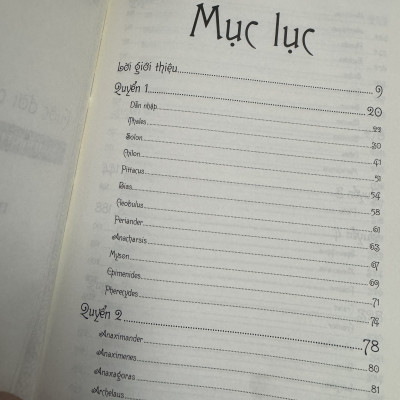 Mục lục
Lời giới thiệu 9
Quyển 1 20
Dẫn nhập
Thales 30
Solon 41
Chilon 51
Pittacus 54
Bias 58
Cleobulus 61
Periander 63
Anacharsis 67
Myson 69
Epimenides 71
Pherecydes 74
Quyển 2 78
Anaximander 80
Anaximenes 81
Anaxagoras
Archelaus